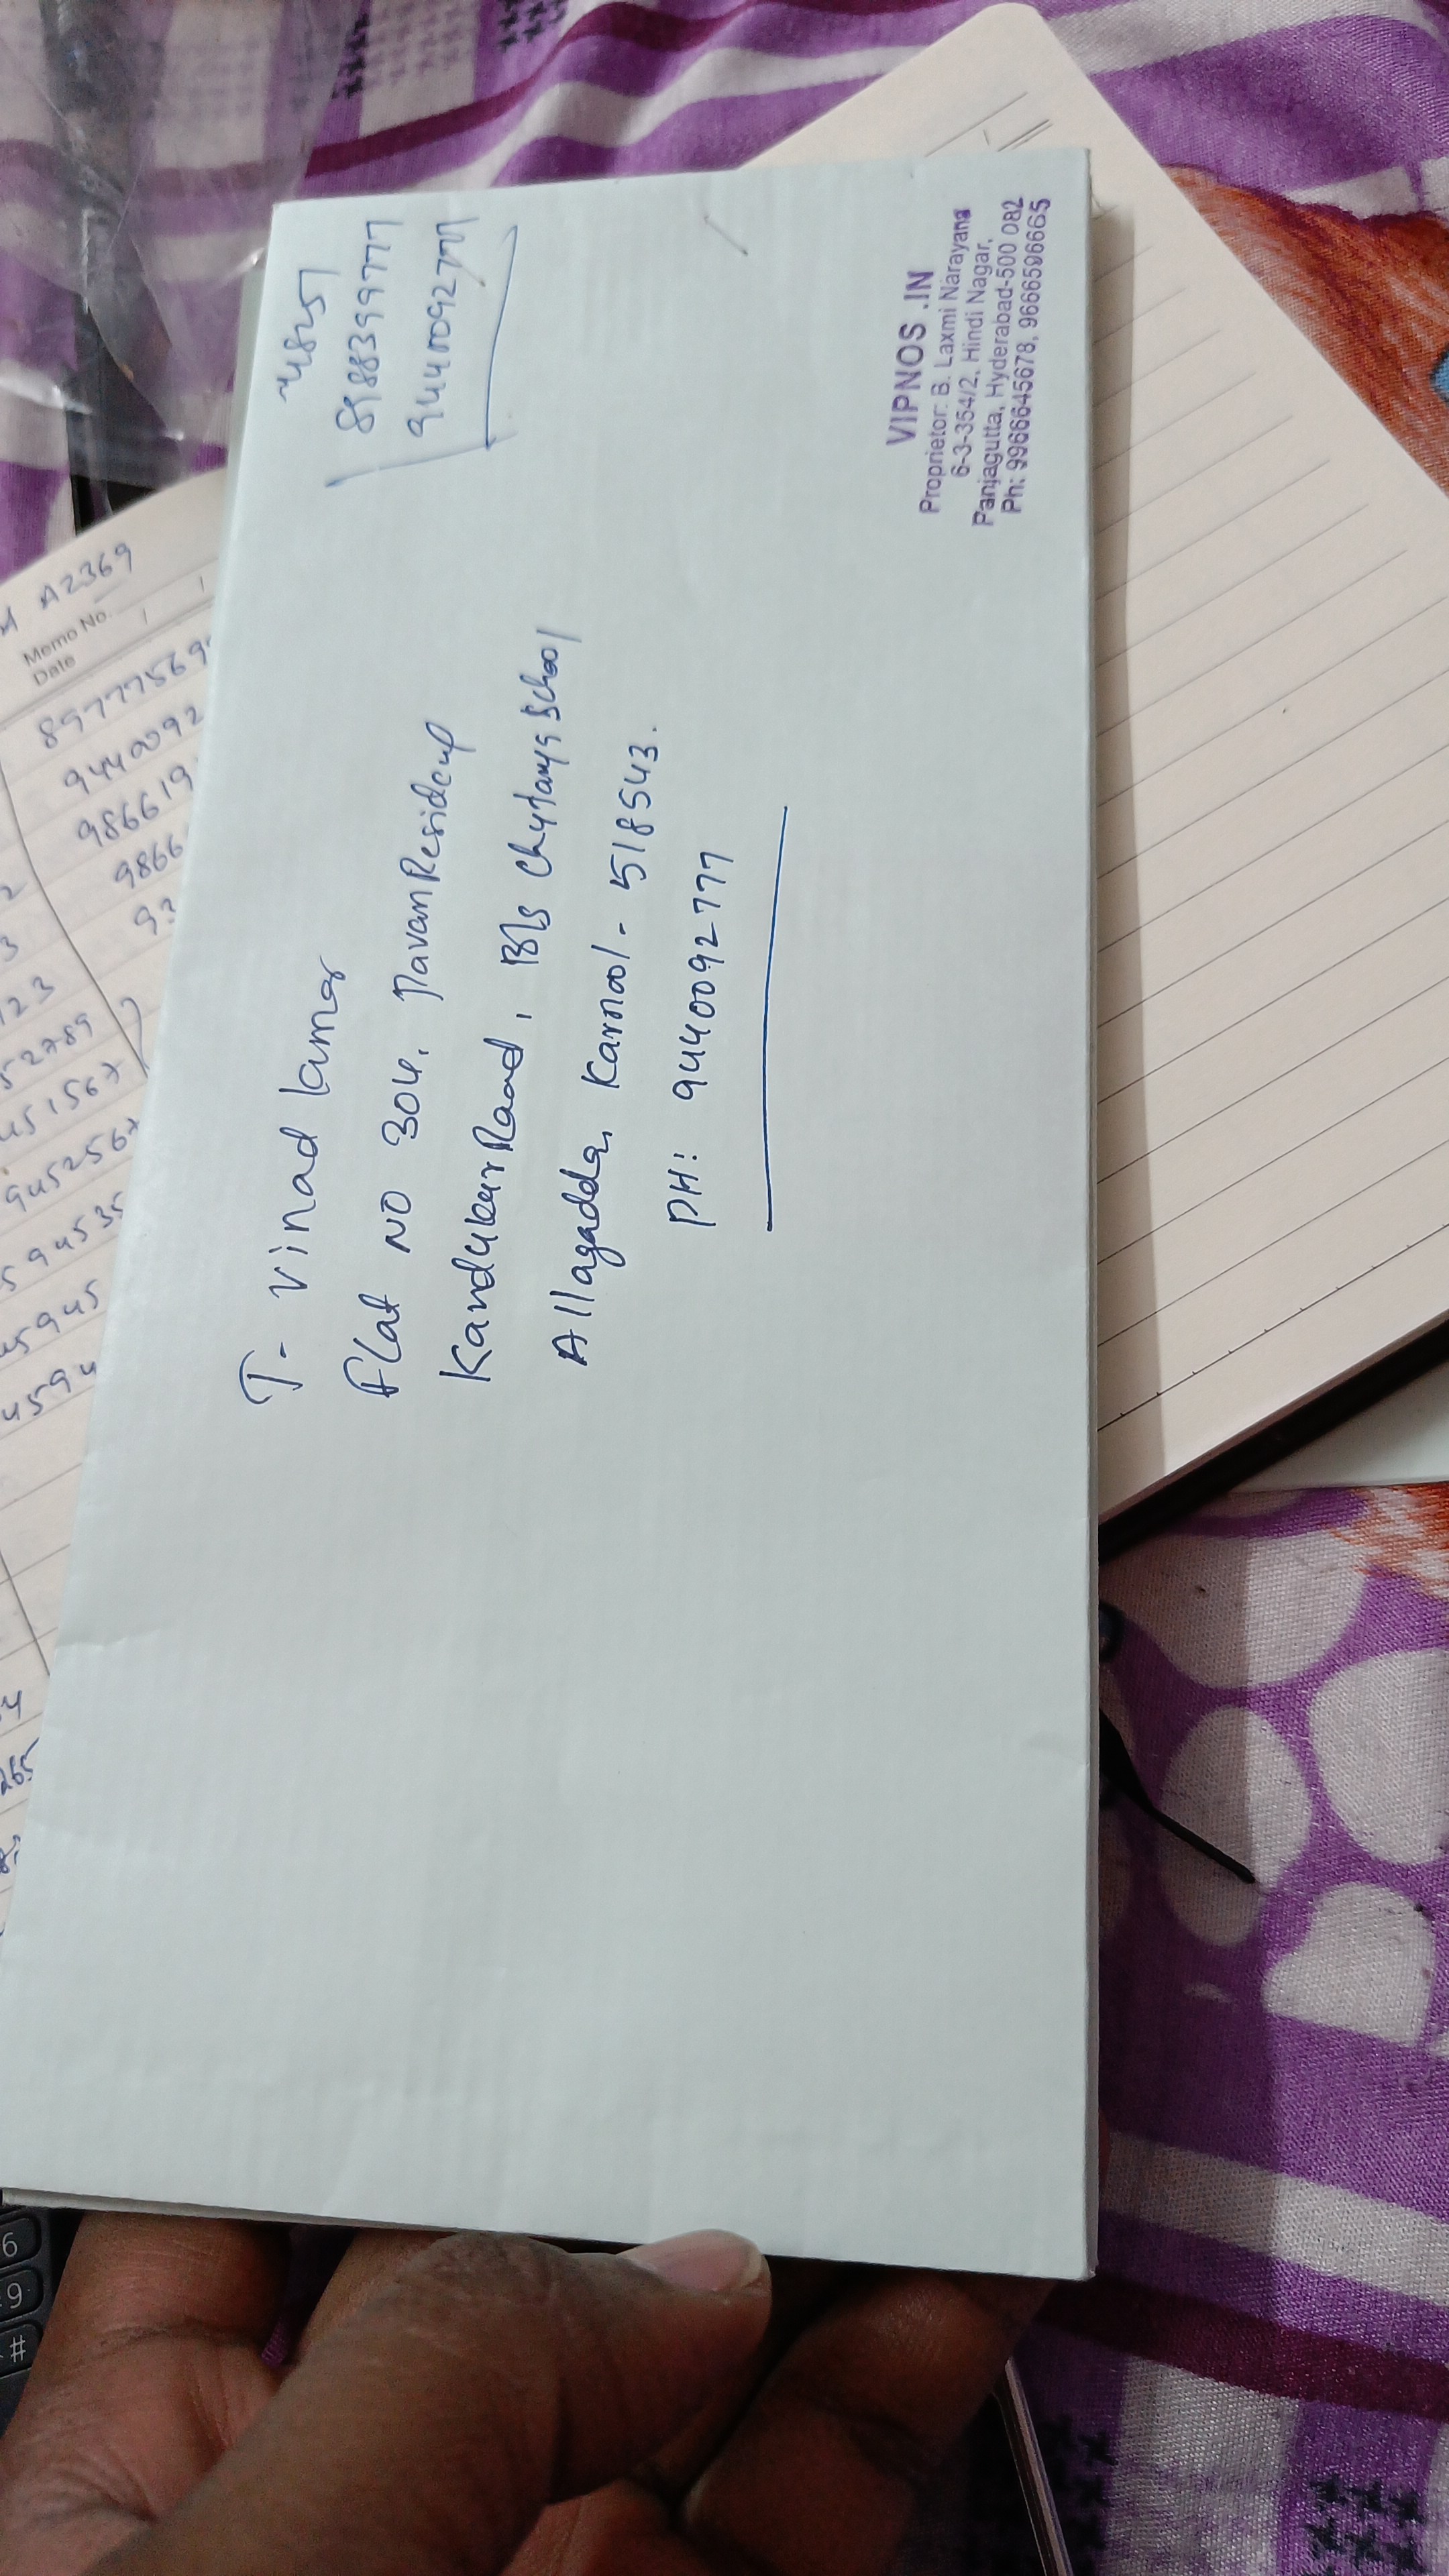 4851
8988399777
9440092777
T. Vinad kumar
Flat NO 304. Pavan Residency
Kandukur Road, B/s Chytanya School
Allagadda, Karnool - 518543.
PH: 9440092777
VIPNOS .IN
Proprietor: B. Laxmi Narayana
6-3-354/2, Hindi Nagar,
Panjagutta, Hyderabad-500 082
Ph: 9966645678, 9666596665
A2369
Memo No.
Date
89777569
9440092
986619
9866
93
123
52789
451567
945256
594535
45945
4594
265
6
9
#